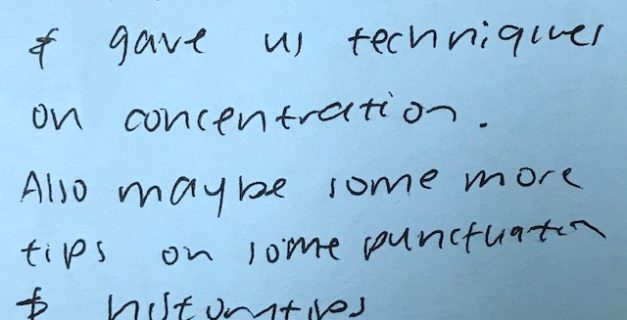 & gave us techniques
on concentration.
Also maybe some more
tips on some punctuation
&